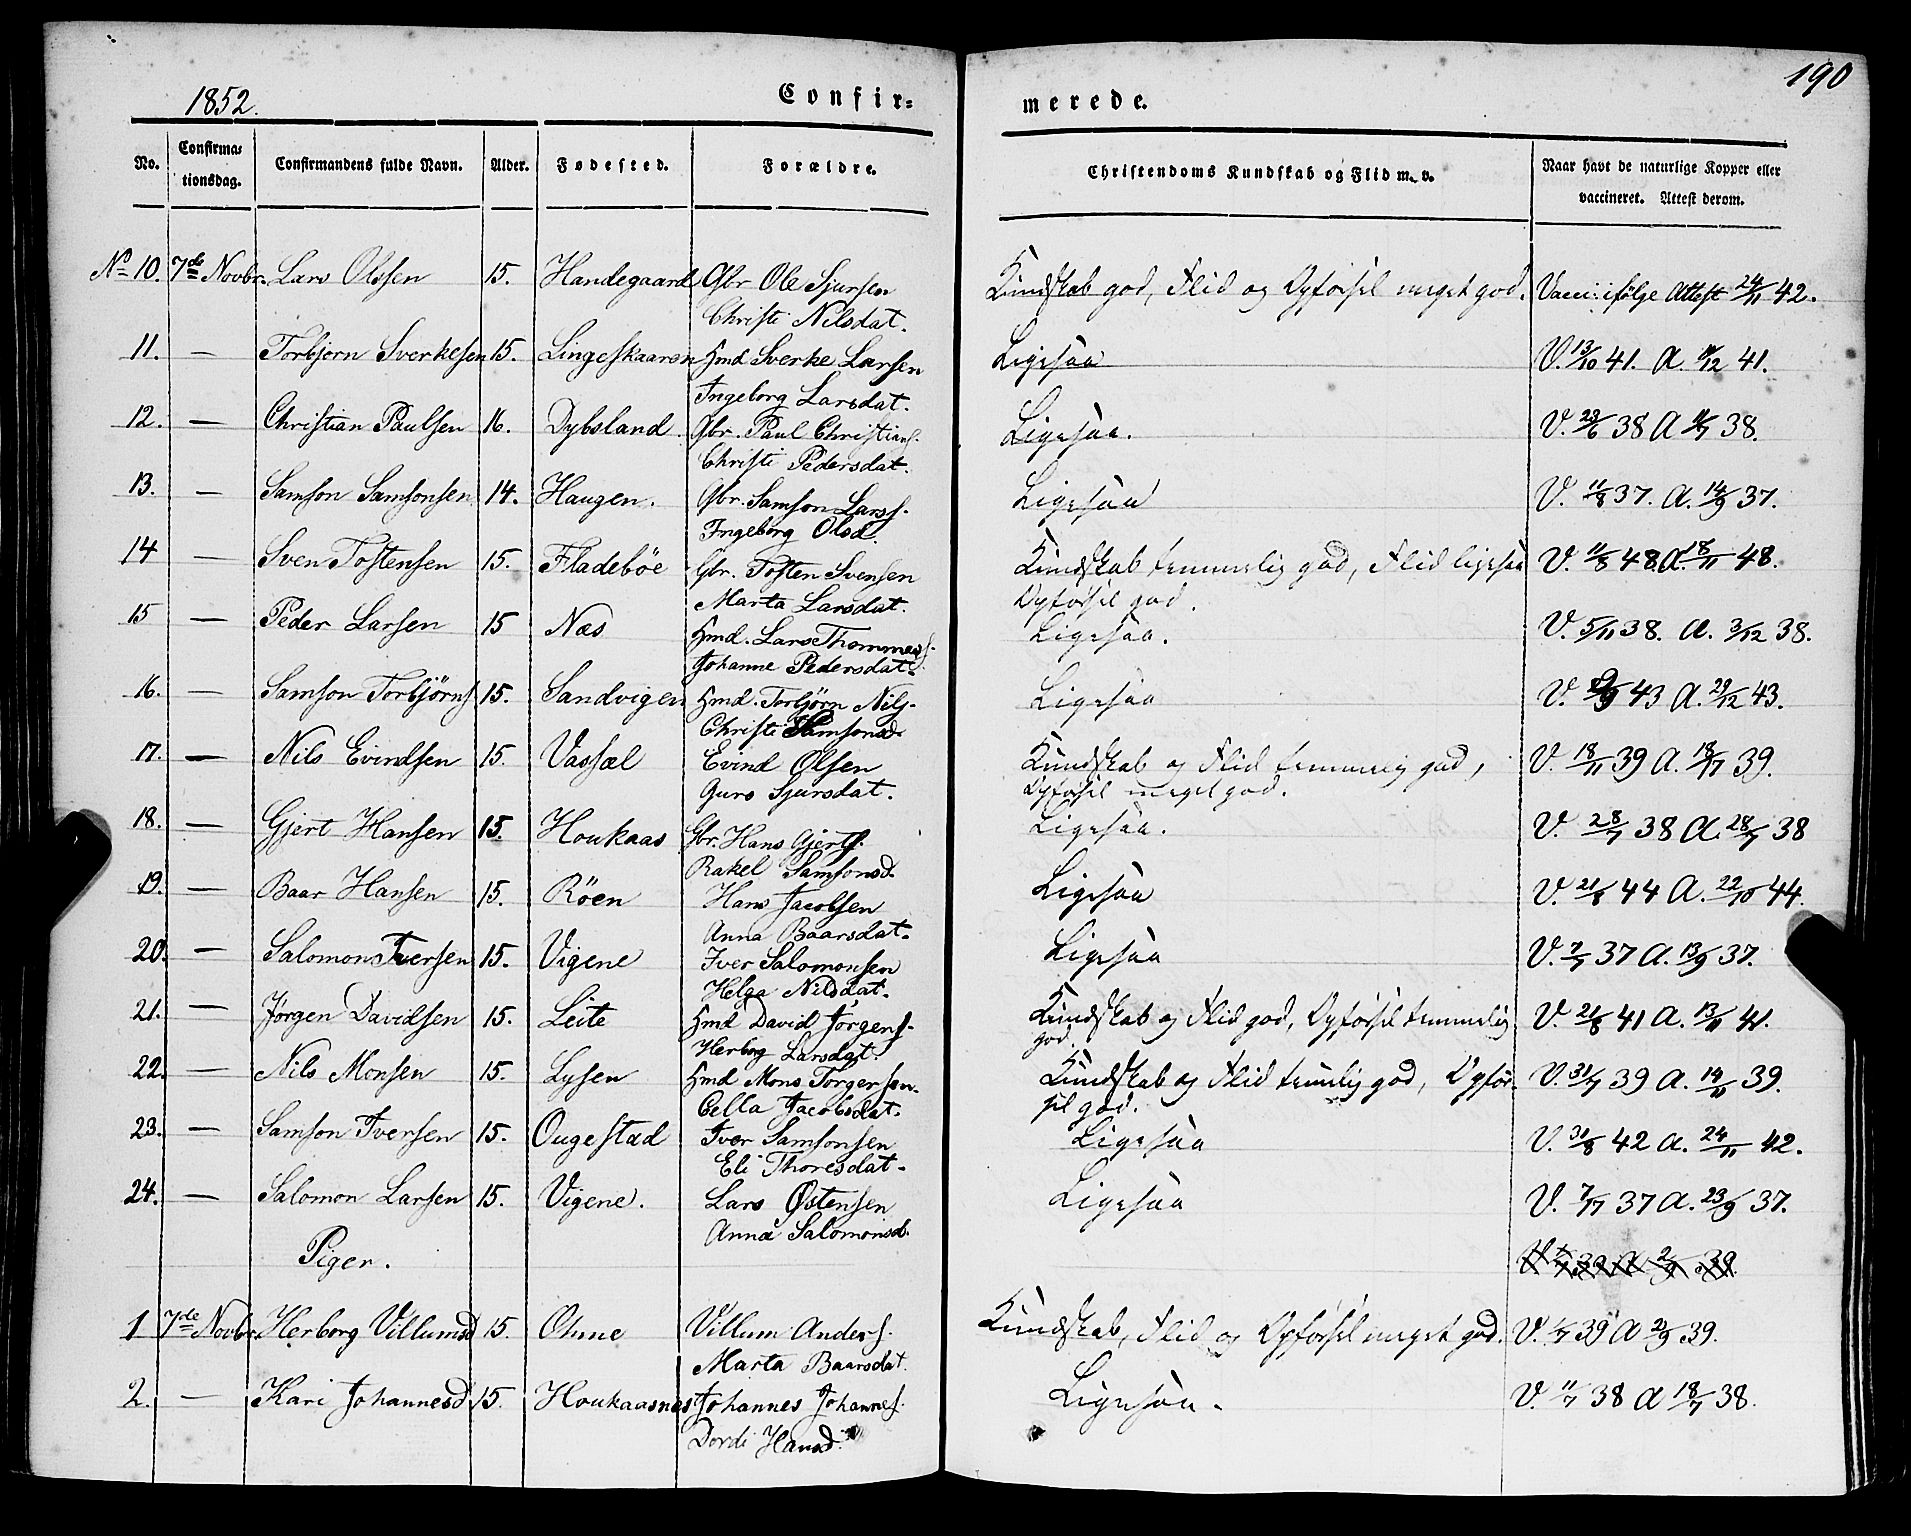 190
1852.
Confir-
merede.
No. Confirma-tionsdag. Confirmandens fulde Navn. Alder. Fødested. Forældre. Christendoms Kundskab og Flid m. v. Naar havt de naturlige Kopper eller vaccineret. Attest derom.
No 10. 7de Novbr. Lars Olssen 15. Handegaard Gbr Ole Sjursen Kundskab god, Flid og Opførsel meget god. Vacc: ifølge Attest 24/11 42.
Christi Nilsdat.
11. — Torbjørn Sverkesen 15. Lingeskaaren Hmd Sverke Larsen Ligesaa V. 13/10 41. A. 11/12 41.
Ingeborg Larsdat.
12. — Christian Paulsen 16. Dybsland. Gbr. Paul Christians. Ligesaa. V. 23/6 38 A 38.
Christi Pedersdat.
13. — Samson Samsonsen 14. Haugen. Gbr. Samson Larss. Ligesaa V. 11/8 37. A. 14/9 37.
Ingeborg Olsd.
14 — Sven Tostensen 15. Fladebøe Gbr. Tosten Svensen Kundskab temmelig god, Flid ligesaa V. 11/8 48 A. 18/11 48.
Marta Larsdat. Opførsel god.
15 — Peder Larsen 15 Næs Hmd. Lars Thommess. Ligesaa. V. 5/11 38. A. 3/12 38.
Johanne Pedersdat.
16. — Samson Torbjørns 15. Sandvigen Hmd. Torbjørn Nils. Ligesaa V. 43 A. 29/12 43.
Christi Samsonsd.
17. — Nils Evindsen 15. Vassel Evind Olsen Kundskab og Flid temmelig god, V. 18/11 39 A. 18/11 39.
Guro Sjursdat. Opførsel meget god.
18. — Gjert Hansen 15. Houkaas Gbr. Hans Gjerts. Ligesaa. V. 28/7 38 A. 28/7 38
Rakel Samsonsd.
19. — Baar Hansen 15. Røen Hans Jacobsen Ligesaa V. 21/8 44 A. 22/10 44.
Anna Baarsdat.
20. — Salomon Iversen 15. Vigene Iver Salomonsen Ligesaa V. 7/7 37 A. 13/9 37.
Helga Nilsdat.
21. — Jørgen Davidsen 15. Leite Hmd David Jørgens. Kundskab og Flid god, Opførsel temmelig V. 21/8 41 A. 13/11 41.
Herbog Larsdat. god.
22. — Nils Monsen 15. Lysen Hmd Mons Torgersen. Kundskab og Flid temlig god, Opfør- V. 31/7 39 A. 14/11 39.
Cella Jacobsdat. sel god.
23. — Samson Iversen 15. Ougestad Iver Samsonsen Ligesaa V. 31/8 42 A. 24/11 42.
Eli Thoresdat.
24. — Salomon Larsen 15. Vigene. Lars Østensen Ligesaa V. 7/7 37 A. 23/9 37.
Anna Salomonsd.
Piger.
1 7de Novbr Herborg Villumsd 15. Ohme Villum Anders. Kundskab, Flid og Opførsel meget god. V. 1/7 39 A 2/9 39.
Marta Baarsdat.
2. — Kari Johannesd 15. Houkaasnes Johannes Johannes. Ligesaa. V. 11/7 38 A 18/7 38.
Dordi Hansd.